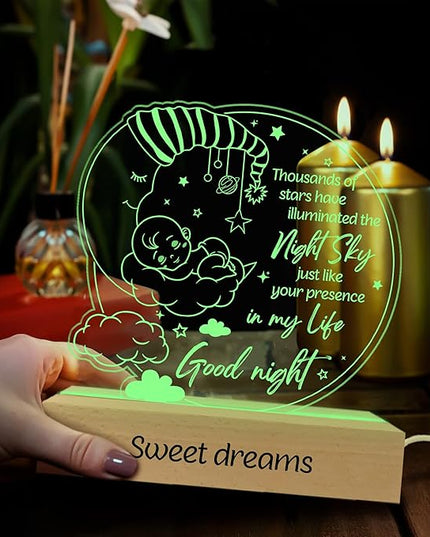 Thousands of
stars have
illuminated the
Night Sky
just like
your presence
in my Life
Good night
Sweet dreams